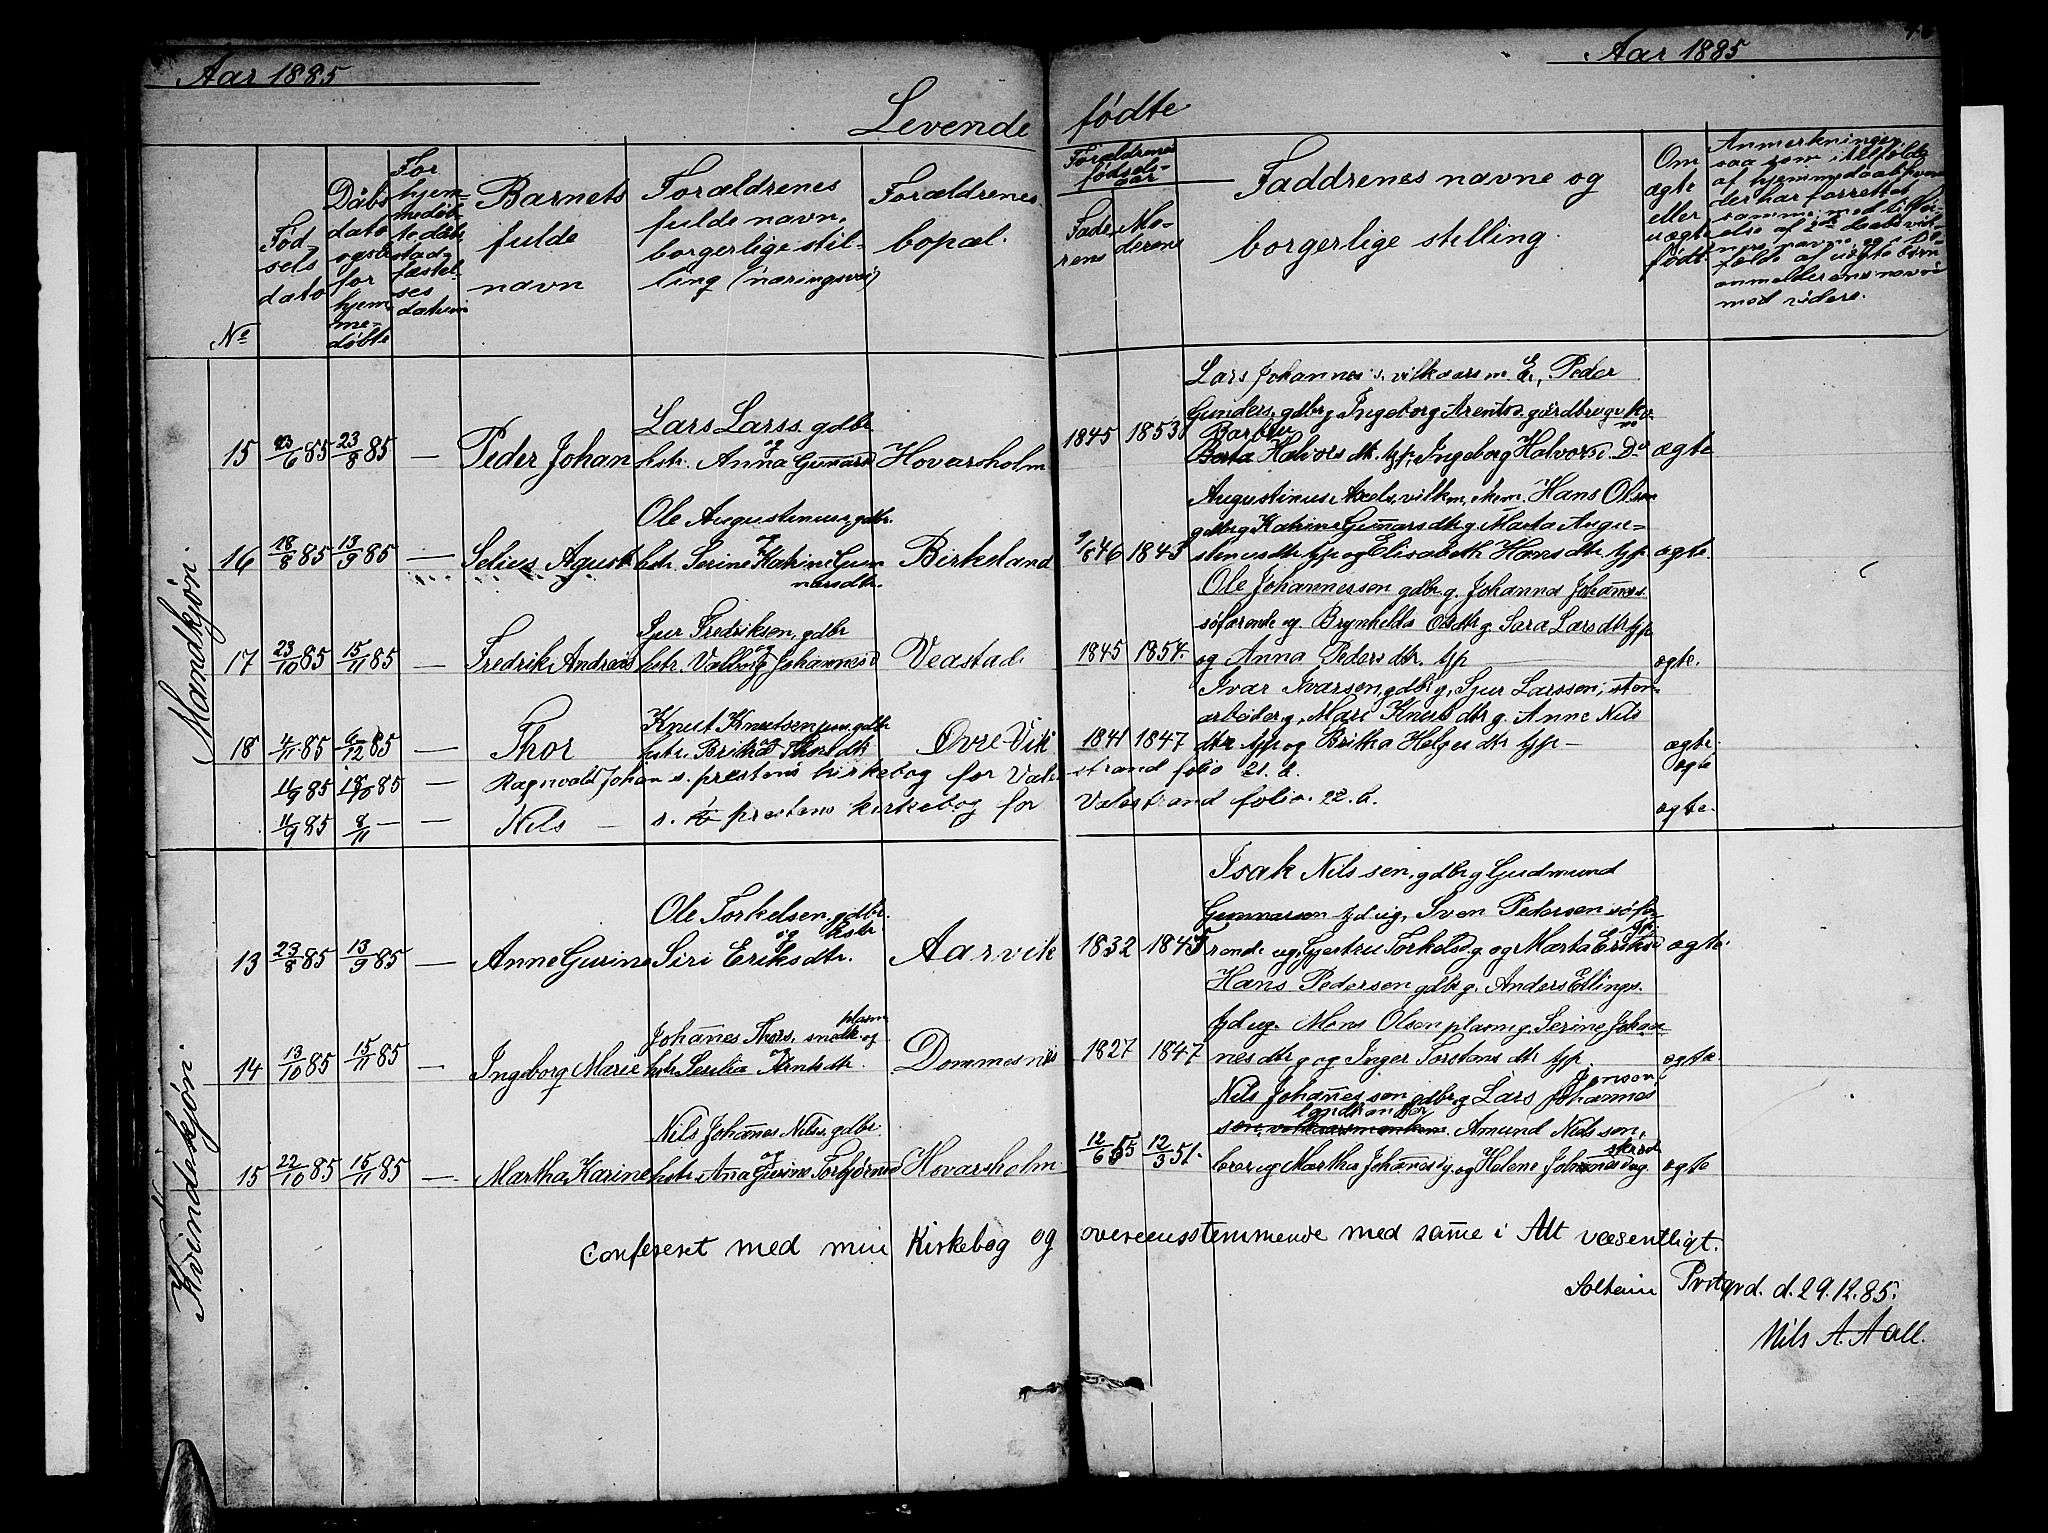 Aar 1885
Aar 1885
Levende fødte
No
Fød-
sels
dato
Dåbs
dato
for
hjem
me-
døbte
For
hjem-
medøb-
te dåbs
stad-
fæstel-
ses
datum
Barnets
fulde
navn
Forældrenes
fulde navn,
borgerlige stil-
ling (næringsvei)
Forældrenes
bopæl.
Forældrenes
fødsels-
aar
Fade-
rens
Mo-
derens
Faddrenes navne og
borgerlige stilling.
Om
ægte
eller
uægte
født
Anmerkninger,
saa som i tilfælde
af hjemmedaab hvem
der har forrettet
samme, med tilføi-
else af daabsvid-
nernes navne, og i til-
fælde af uægte børn
anmelderens navn
med videre.
Mandkjøn
15 23/6 85 23/8 85 — Peder Johan
Lars Larss. gdbr.
og
hstr. Anna Gunnarsd
Hovarsholm
1845 1853
Lars Johannes s. vilkaarsm. E., Peder
Gunders. gdbr g Ingeborg Arentsd. gårdbrug. k.
Barbru
Berta Halvors dtr. tjp, Ingeborg Halvorsd. Do
ægte
16 18/8 85 13/9 85 — Selius Agust
Ole Augustinuss. gdbr.
og
hstr. Serine Katrine Gun
narsdtr.
Birkeland
9/8 46 1843
Augustinus Axels. vilkm. ekem. Hans Olsen
gdbr g Katrine Gunnarsdtr g Marta Augu-
stinusdtr tjp og Elisabeth Hansdtr tjp
ægte.
17 23/10 85 15/11 85 — Fredrik Andreas
Sjur Fredriksen, gdbr
og
hstr. Valborg Johannesd
Veastad.
1845 1854.
Ole Johannessen gdbr g. Johannes Johannes.
søfarende ug Brynhilda Olsdtr g. Sara Larsdtr tjp
og Anna Pedersdtr. tjp
ægte.
18 4/11 85 6/12 85 — Thor
Knut Knutsen jun. gdbr
hstr. Britha Thorsdtr
Øvre Vik
1841 1847
Ivar Ivarsen, gdbr g, Sjur Larssen, sten-
arbeider g, Mari Knutsdtr g. Anne Nils
dtr tjp og Britha Helges dtr tjp —
ægte.
11/9 85 18/10 85 — Ragnvald Johan s. prestens kirkebog for Vale
strand folio 21. b.
ægte
11/9 85 8/11 — — Nils — s. prestens kirkebog for
Valestrand folio. 22. b.
ægte.
Kvindekjøn
13 23/8 85 13/9 85 — Anne Gurine
Ole Torkelsen, gdbr.
og hstr
Siri Eriksdtr.
Aarvik
1832 1845
Isak Nilssen, gdbr g Gudmund
Gunnarsen tjd ug, Sven Pedersen søfa-
rende ug, Gjertru Torkelsd g. og Marta Eriksd
ægte.
14 13/10 85 15/11 85 — Ingeborg Marie
plasm
Johanes Thors. snedk. og
og
hstr Serilia Arntsdtr.
Dommesnes
1827 1847
Hans Pedersen gdbr g. Anders Ellings.
tjd ug. Mons Olsen plasm g. Serine Johan
nesdtr g og Inger Torstens dtr tjp.
ægte.
15 22/10 85 15/11 85 — Martha Karine
Nils Johanes Nilss. gdbr.
og
hstr. Ana Gurine Torbjørnsd
Hovarsholm
12/6 55 12/3 51.
Jenson,
Nils Johanessen gdbr g Lars Johannes
landhandler
sen, vilkaarsmankem. Amund Nelsson,
skræd
lærer ug Martha Johanesd g. og Helene Johanesd ug
ægte
Conferert med min Kirkebog og overensstemmende med same i Alt væsentligt.
Soltein Prstgrd. d. 29.12.85.
Nils A. Aall.